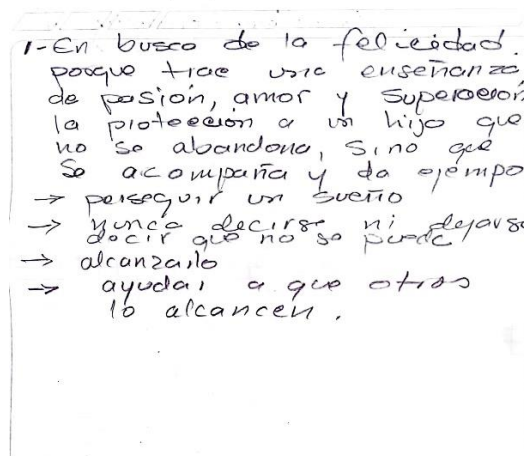 1-En busca de la felicidad.
porque trae una enseñanza
de pasión, amor y superación
la protección a un hijo que
no se abandona, sino que
se acompaña y da ejempo
→ perseguir un sueño
→ nunca decirse ni dejarse
decir que no se puede
→ alcanzarlo
→ ayudar a que otros
lo alcancen.